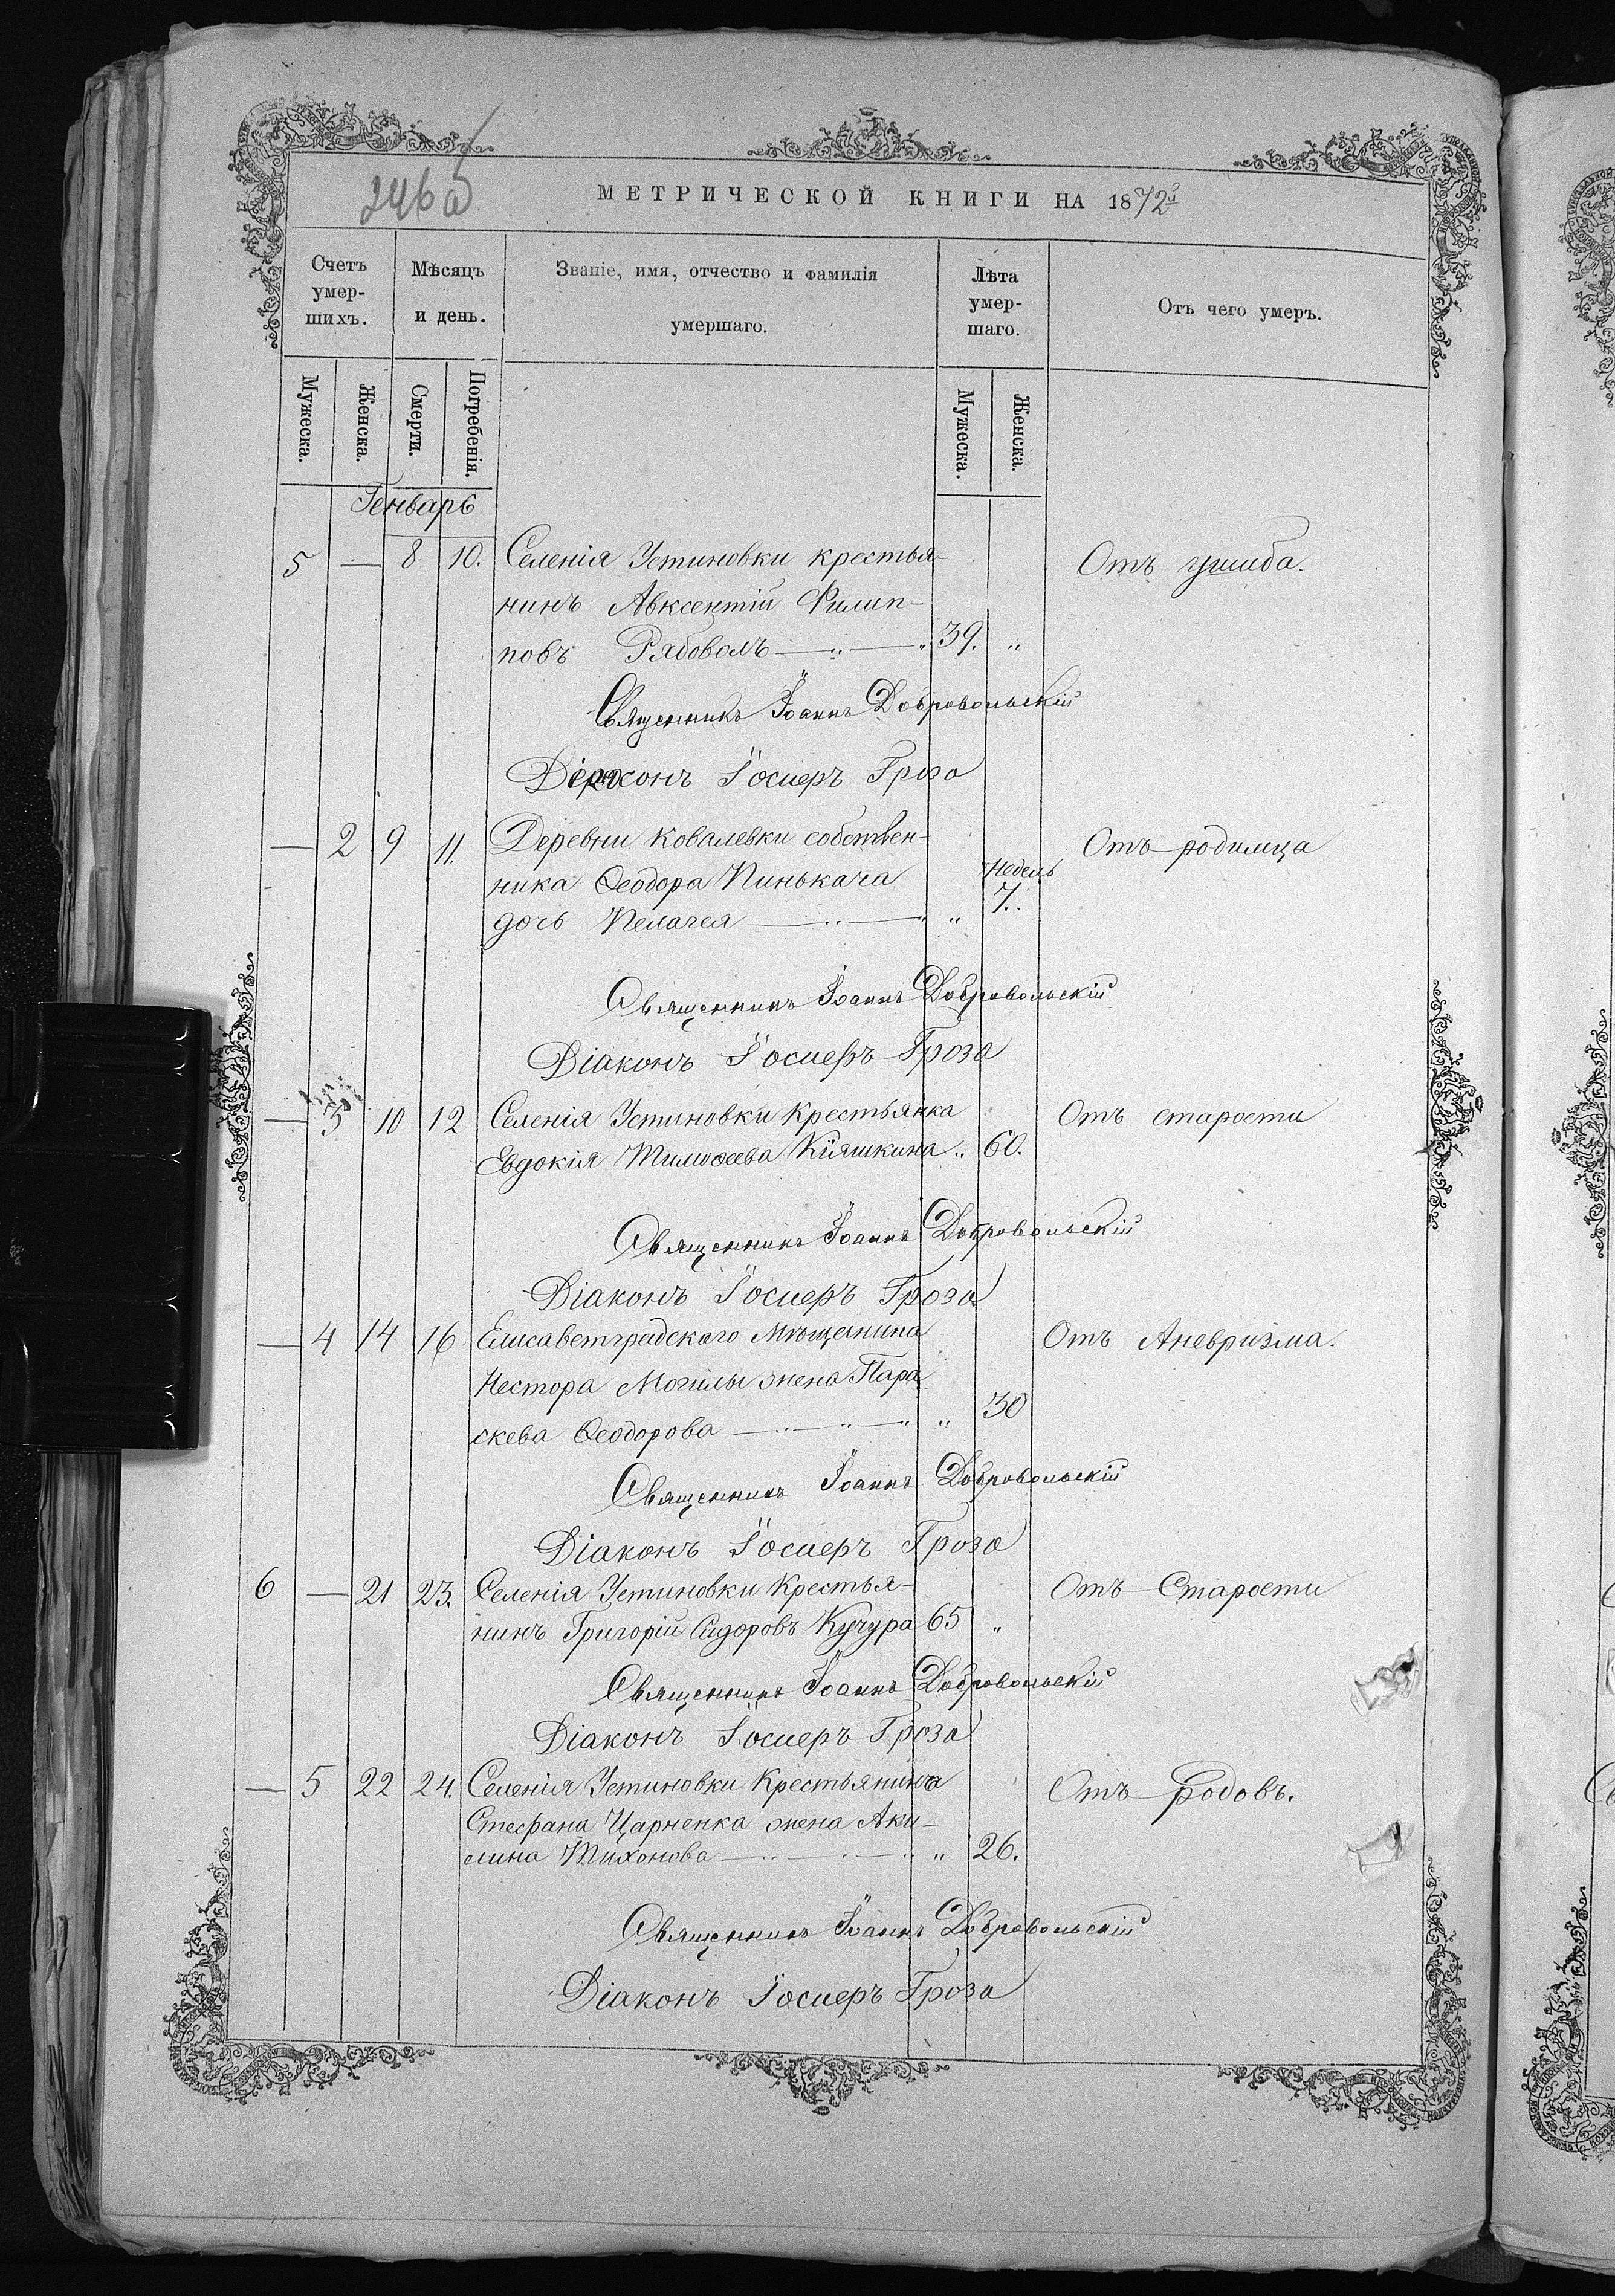 246 об
МЕТРИЧЕСКОЙ КНИГИ НА 1872й
Счетъ умер-шихъ. Мѣсяцъ и день. Званіе, имя, отчество и фамилія умершаго. Лѣта умер-шаго. Отъ чего умеръ.
Мужеска. Женска. Смерти. Погребенія. Мужеска. Женска.
Генварь
5 — 8 10. Селенія Устиновки крестья- Отъ ушиба.
нинъ Авксентій Филип-
повъ Рябоволъ — 39. "
Священникъ Іоаннъ Добровольскій
Діаконъ Іосиеръ Гроза
— 2 9 11. Деревни Ковалевки собствен- Отъ родимца
ника Ѳеодора Пинькача Недель
дочь Пелагея — " 7.
Священникъ Іоаннъ Добровольскій
Діаконъ Іосиеръ Гроза
— 3 10 12 Селенія Устиновки крестьянка Отъ старости
Евдокія Тимоѳеева Кіяшкина " 60.
Священникъ Іоаннъ Добровольскій
Діаконъ Іосиеръ Гроза
— 4 14 16 Елисаветградскаго Мѣщанина Отъ Аневризма.
Нестора Могилы жена Пара
скева Ѳеодорова — " 30
Священникъ Іоаннъ Добровольскій
Діаконъ Іосиеръ Гроза
6 — 21 23. Селенія Устиновки Крестья- Отъ Старости
нинъ Григорій Сидоровъ Кучура 65 "
Священникъ Іоаннъ Добровольскій
Діаконъ Іосиеръ Гроза
— 5 22 24. Селенія Устиновки Крестьянина Отъ родовъ.
Стефана Царненка жена Аки-
лина Тихонова — " 26.
Священникъ Іоаннъ Добровольскій
Діаконъ Іосиеръ Гроза